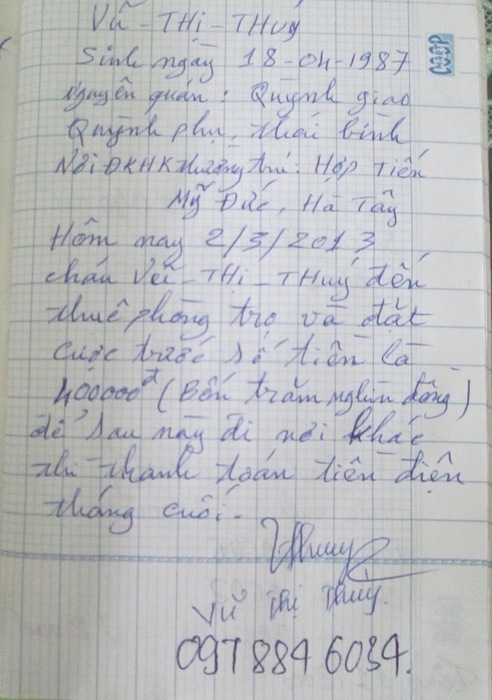 Vũ - THị - THuý
Sinh ngày 18-04-1987
COOP
Nguyên quán : Quỳnh giao
Quỳnh phụ, thái bình
Nơi ĐKHK thường trú: Hợp Tiến
Mỹ Đức, Hà Tây
Hôm nay 2/3/2013
cháu Vũ - THị - THuý đến
thuê phòng trọ và đặt
cược trước số tiền là
400000đ (Bốn trăm nghìn đồng)
để sau này đi nơi khác
thì thanh toán tiền điện
tháng cuối.
Thuý
Vũ Thị Thuý.
097 884 6034.